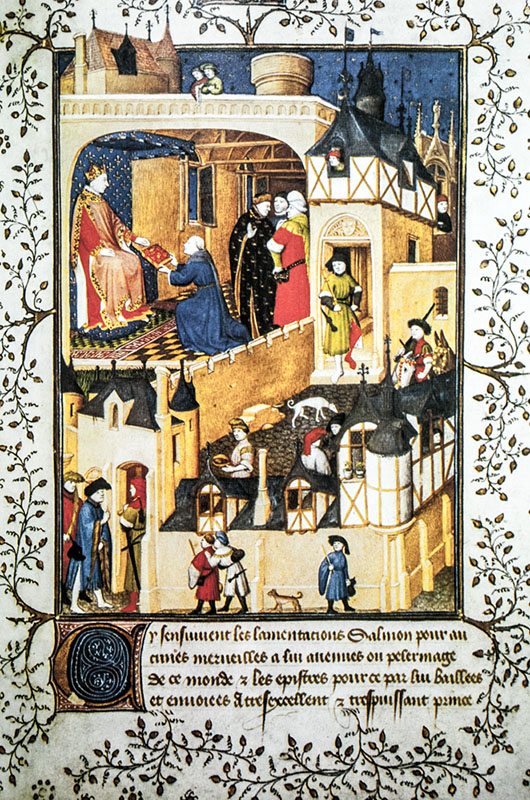 Cy sensuivent les lamentacions Salmon pour au
cunes merueilles a lui auenues ou pelerinage
de ce monde & les epistres pour ce par lui baillees
et enuoiees a tresexcellent & trespuissant prince